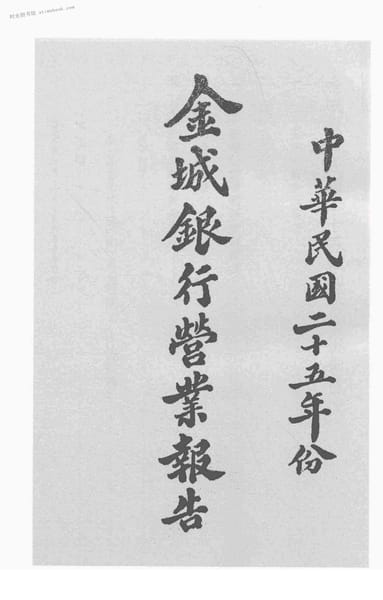 中華民國二十五年份
金城銀行營業報告